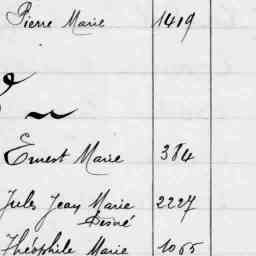 Pierre Marie 1419
Ernest Marie 384
Jules Jean Marie 2227
Désiré
Théophile Marie 1065